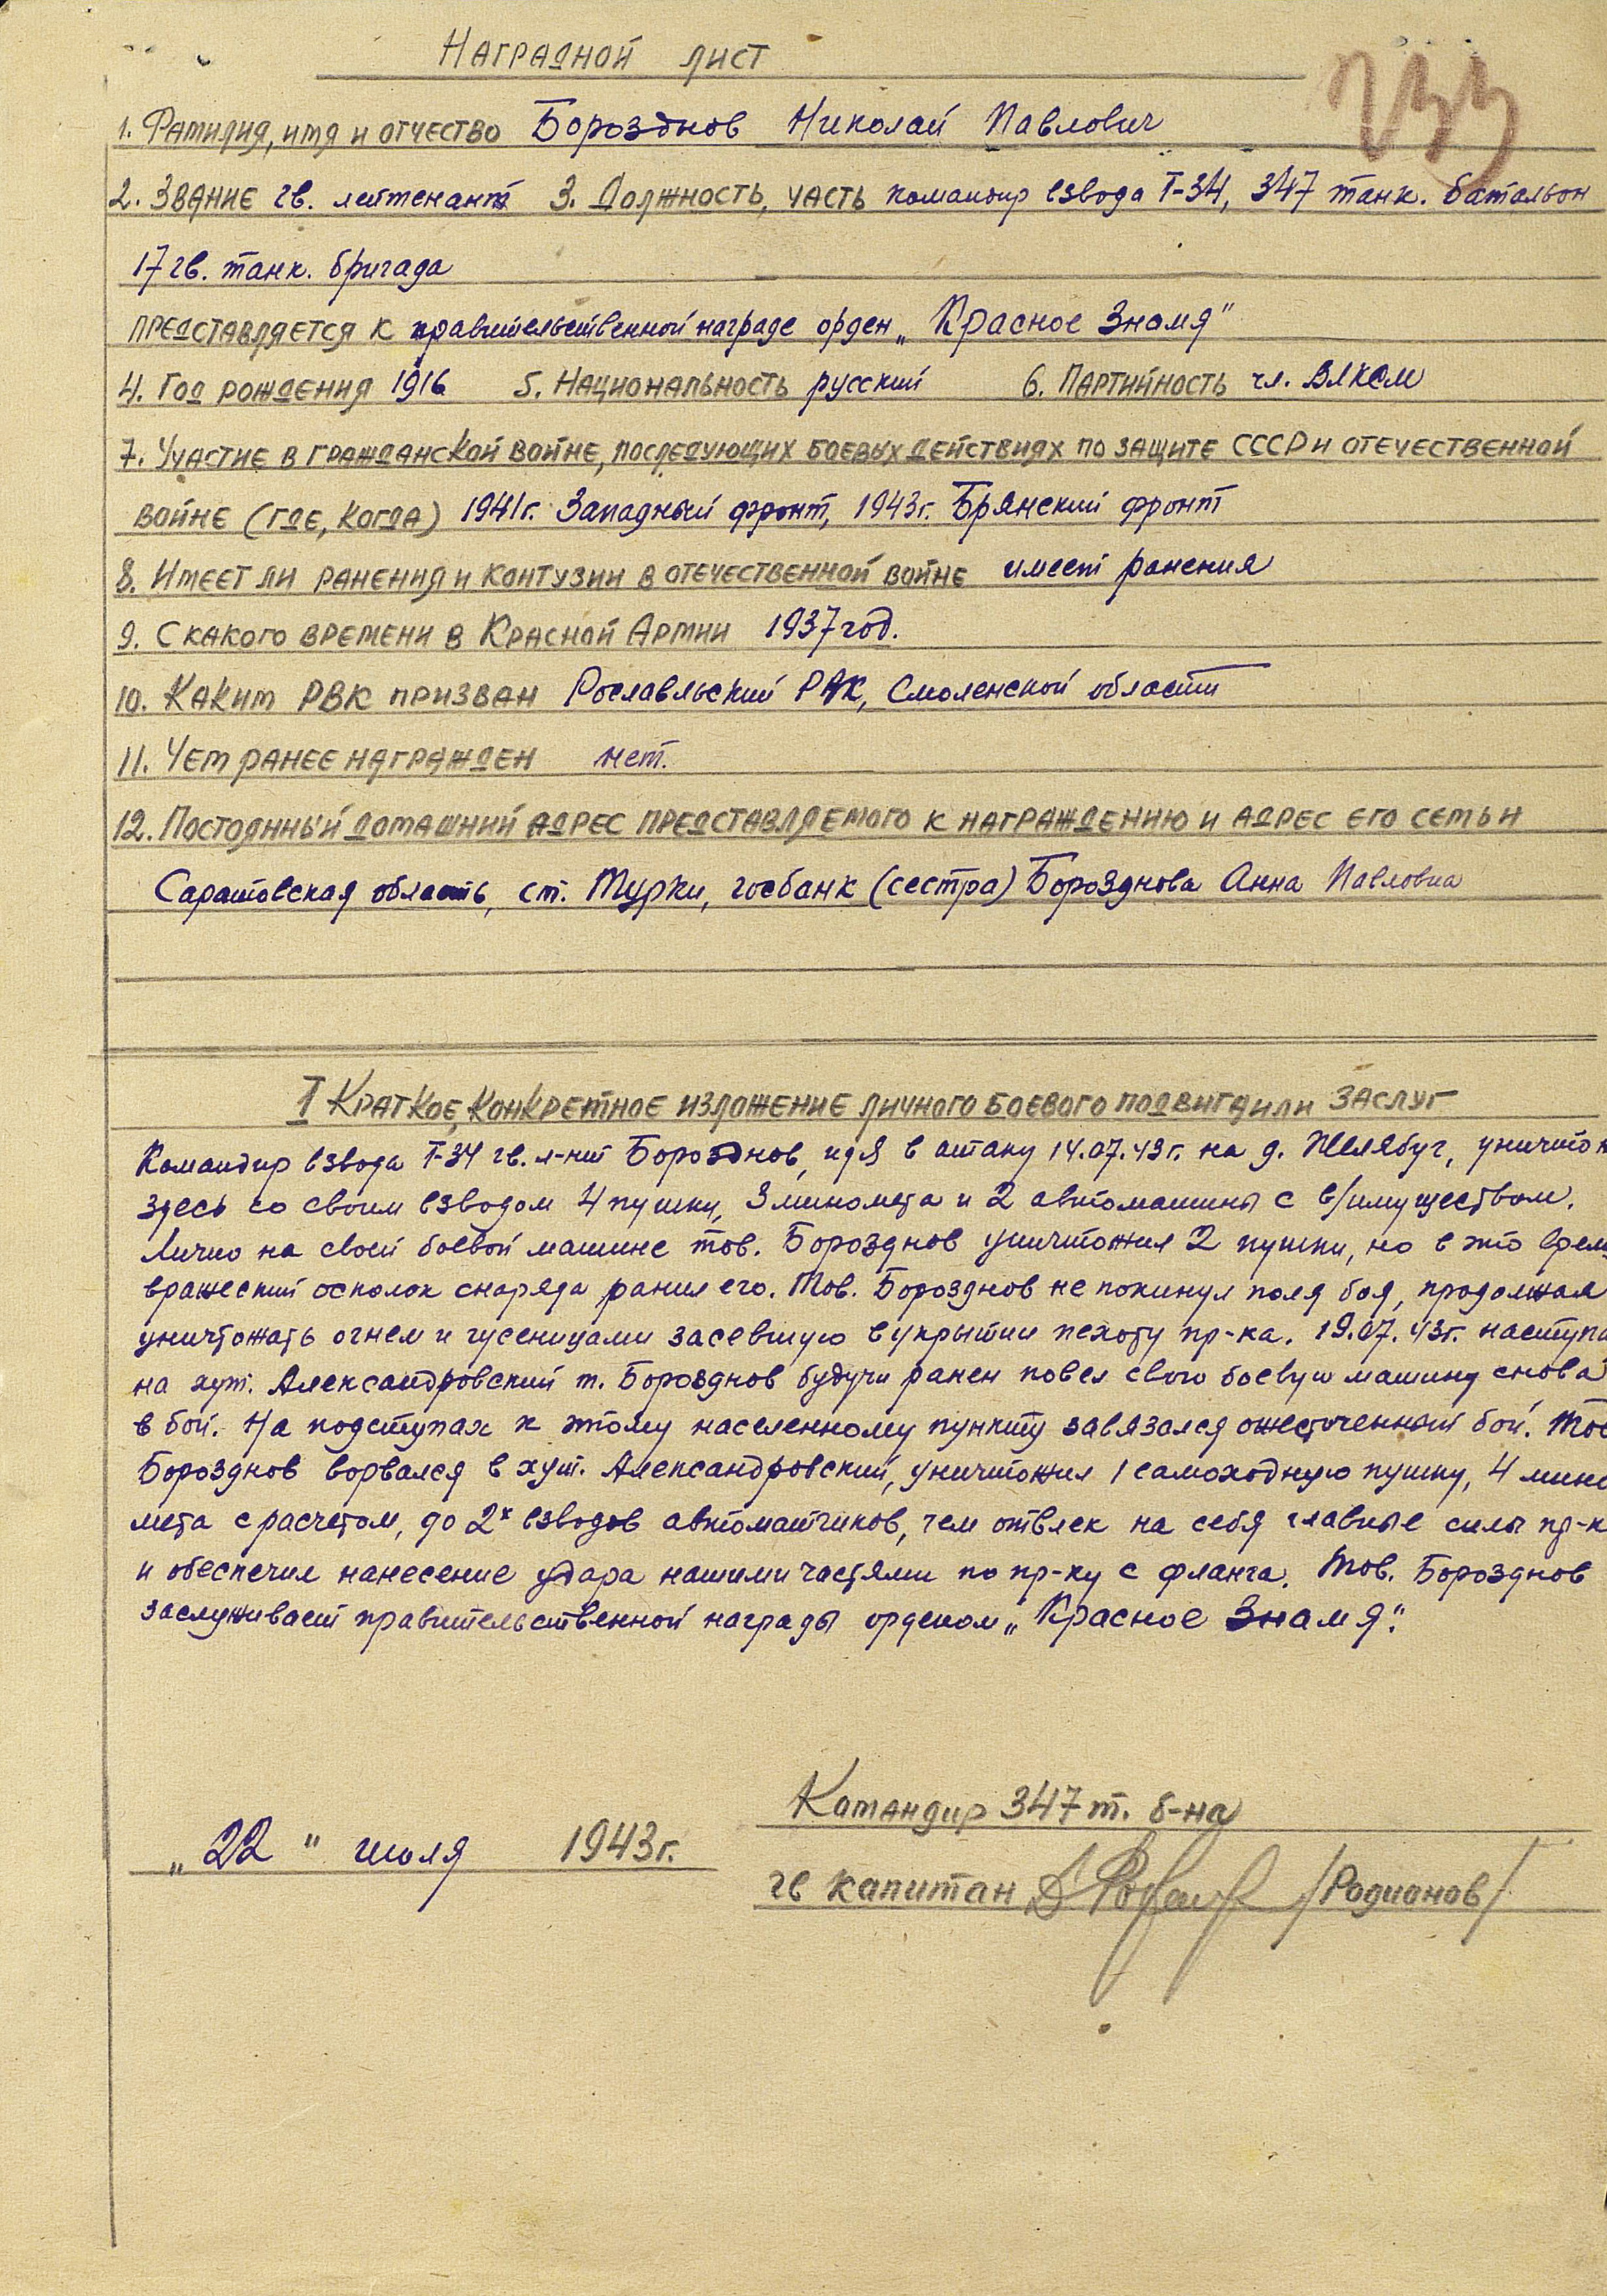 Наградной лист
1. Фамилия, имя и отчество Борозднов Николай Павлович
2. Звание гв. лейтенант 3. Должность, часть командир взвода Т-34, 347 танк. батальон
17 гв. танк. бригада
представляется к правительственной награде орден „Красное Знамя"
4. Год рождения 1916 5. Национальность русский 6. Партийность чл. ВЛКСМ
7. Участие в гражданской войне, последующих боевых действиях по защите СССР и отечественной
войне (где, когда) 1941г. Западный фронт, 1943г. Брянский фронт
8. Имеет ли ранения и контузии в отечественной войне имеет ранения
9. С какого времени в Красной Армии 1937 год.
10. Каким РВК призван Рославльский РВК, Смоленской области
11. Чем ранее награжден нет.
12. Постоянный домашний адрес представляемого к награждению и адрес его семьи
Саратовская область, ст. Турки, госбанк (сестра) Борозднова Анна Павловна
I Краткое, конкретное изложение личного боевого подвига или заслуг
Командир взвода Т-34 гв. л-нт Борозднов, идя в атаку 14.07.43г. на д. Желябуг, уничтож
здесь со своим взводом 4 пушки, 3 миномета и 2 автомашины с в/имуществом.
Лично на своей боевой машине тов. Борозднов уничтожил 2 пушки, но в это врем
вражеский осколок снаряда ранил его. Тов. Борозднов не покинул поля боя, продолжая
уничтожать огнем и гусеницами засевшую в укрытии пехоту пр-ка. 19.07.43г. наступа
на хут. Александровский т. Борозднов будучи ранен повел свою боевую машину снова
в бой. На подступах к этому населенному пункту завязался ожесточенный бой. Тов
Борозднов ворвался в хут. Александровский, уничтожил 1 самоходную пушку, 4 мино
мета с расчетом, до 2х взводов автоматчиков, чем отвлек на себя главные силы пр-к
и обеспечил нанесение удара нашими частями по пр-ку с фланга. Тов. Борозднов
заслуживает правительственной награды орденом „Красное Знамя".
Командир 347 т. б-на
„22" июля 1943г.
гв капитан /Родионов/